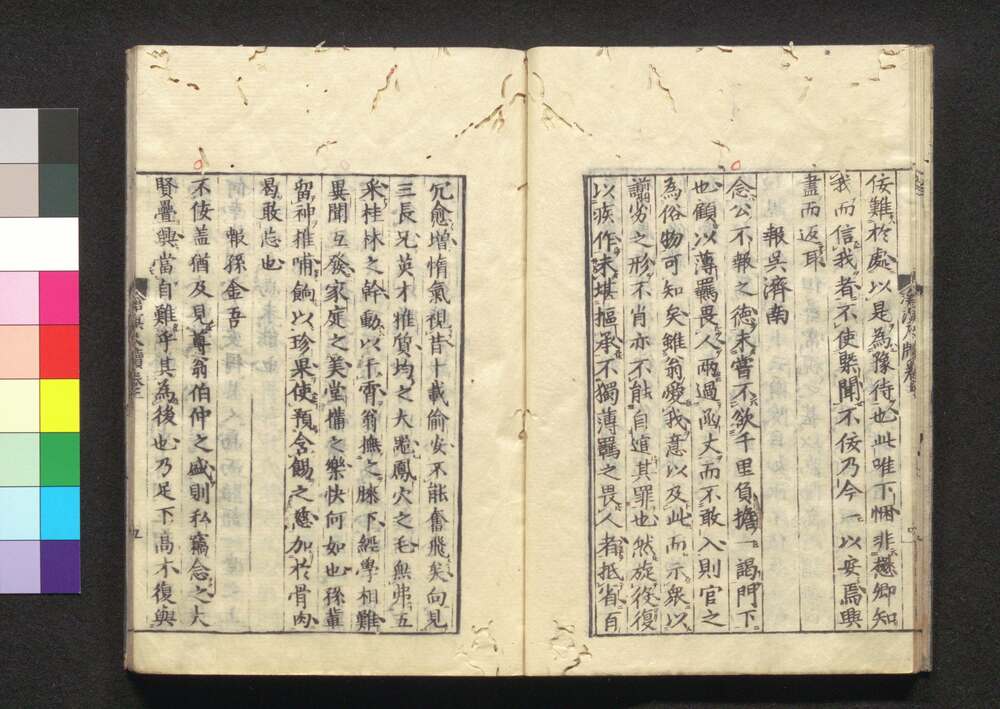 佞難於處以是為豫待也此唯下悃非懋卿知
我而信我者不使緊聞不佞乃今一以安焉興
盡而返耳
報吳濟南
念公不報之德未嘗不欲千里負擔一謁門下
也顧以薄羈畏人兩過函丈而不敢入則官之
為俗物可知矣雖翁愛我意以及此而示衆以
謭劣之形不肖亦不能自逭其罪也然旋復復
以疾作未堪摳承不獨薄羈之畏人者抵省自
冗愈增惰氣視昔十載偷安不能奮飛矣向見
三長兄英才雅質均之大羆鳳穴之毛無弗五
采桂林之幹動以千霄翁撫之膝下經學相難
異聞互發家庭之美堂搆之樂快何如也孫輩
留神推哺餉以珍果使預含餳之慈加於骨肉
曷敢忘也
報孫金吾
不佞盖猶及見尊翁伯仲之盛則私竊念之大
賢疊興當自難乎其為後也乃足下高不復與
五